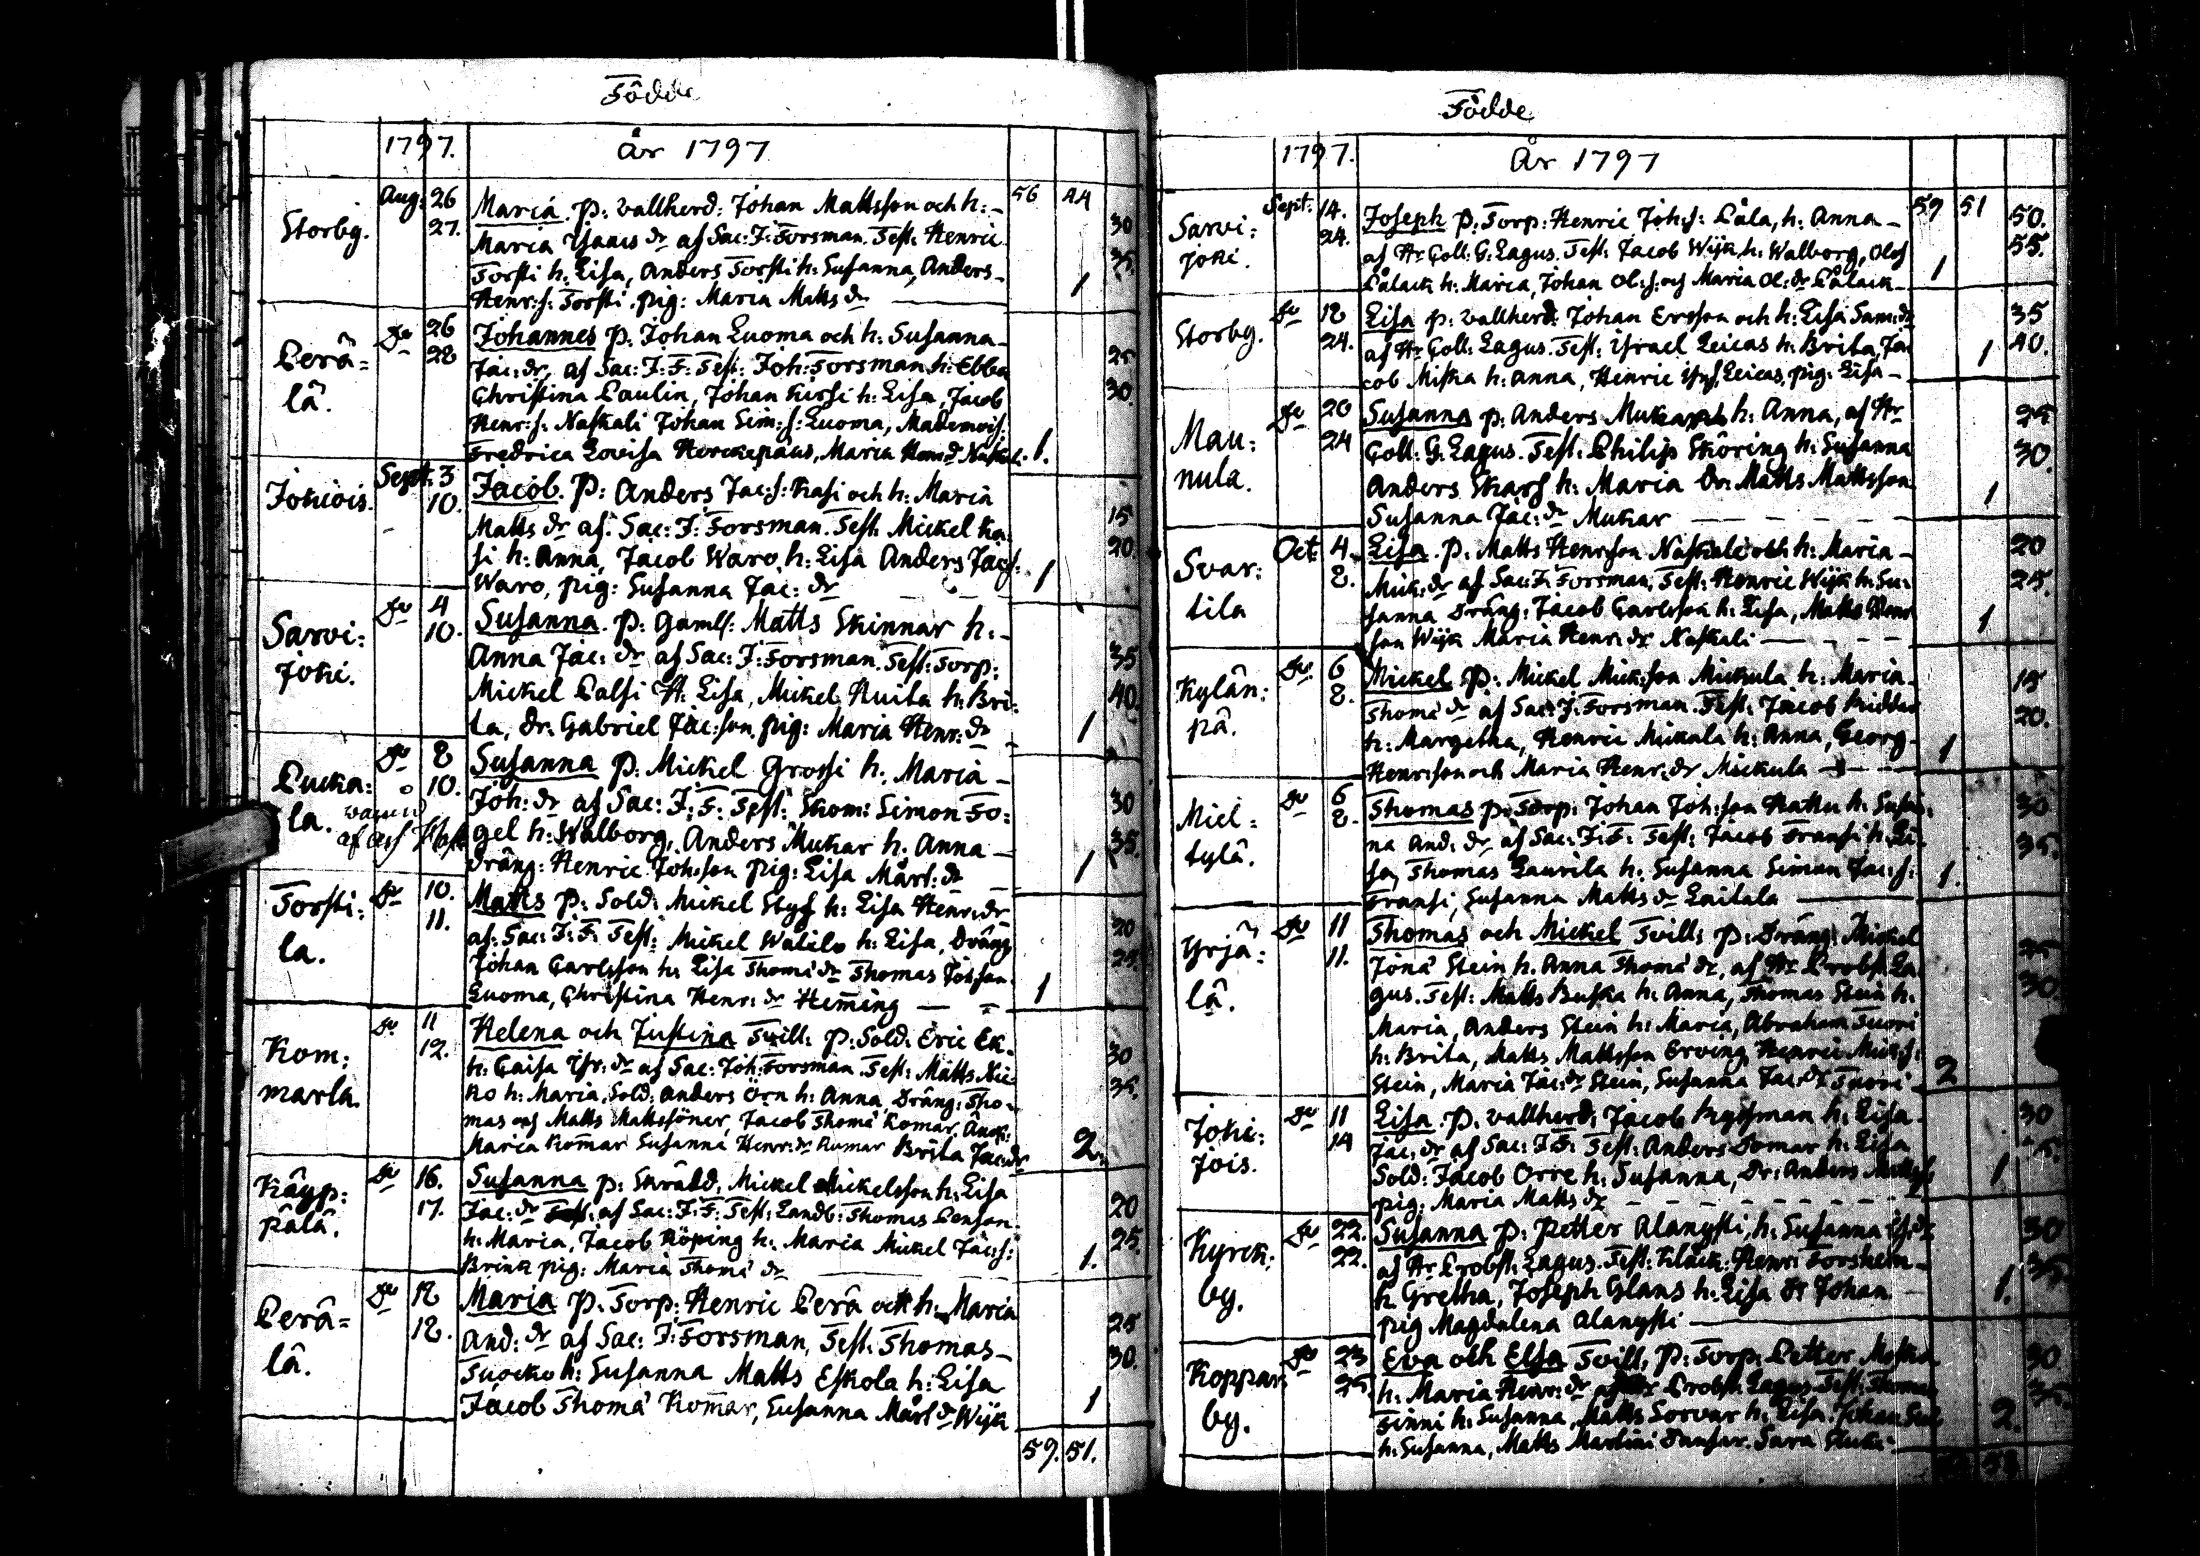 Födde
1797.
År 1797
Storbg.
Aug: 26
27.
Maria p: vallherd: Johan Mattsson och h:
Maria Isaacs dr af Sac: J: Forsman. Test: Henric
Torsti h: Lisa, Anders Torsti h: Susanna, Anders
Henr: s: Torsti. pig: Maria Matts dr
56 44
30
35.
1
Perä=
lä.
do 26
28
Johannes p: Johan Luoma och h: Susanna
Jac: dr, af Sac: J: F: Test: Joh: Forsman h: Ebba
Christina Paulin, Johan Kirsi h: Lisa, Jacob
Henr: s: Naskali Johan Sim: s: Luoma, Mademois:
Fredrica Lovisa Herckepæus, Maria Henr dr
25
30.
1.
Jokiois.
Sept. 3
10.
Jacob. p: Anders Jac: s: Kasi och h: Maria
Matts dr af. Sac: J: Forsman. Test: Mickel Ka
si h: Anna, Jacob Waro, h: Lisa Anders Jacs:
Waro, pig: Susanna Jac: dr
15
20.
1
Sarvi:
joki.
do 4
10.
Susanna. p: Gaml: Matts Skinnar h:
Anna Jac: dr af Sac: J: Forsman. Test: Torp:
Mickel Palsi h: Lisa, Mickel Kuita h: Bri:
ta, dr: Gabriel Jac:son, pig: Maria Henr: dr
35
40.
1
Pucka:
la.
do 8
10.
Susanna p: Mickel Grossi h. Maria
Joh: dr af Sac: J: F: Test: Thom: Simon Fo:
gel h: Walborg, Anders Mukar h: Anna
dräng: Henric Joh:son pig: Lisa Mårt: dr
30
35.
1
Torsti:
la.
do 10.
11.
Matts p: Sold: Mickel Styf h: Lisa Henr: dr
af. Sac: J: F: Test: Mickel Walilo h: Lisa, Dräng
Johan Carlsson h: Lisa Thomæ dr Thomas Joh:son
Luoma, Christina Henr: dr Heming
20
25.
1
Kom:
marla.
do 11
12.
Helena och Justina Tvill: p: Sold: Eric Ek.
h: Caisa Isr: dr af Sac: Joh: Forsman Test: Matts Nie
ko h: Maria, Sold: Anders Örn h: Anna, Dräng: Tho
mas och Matts Mattssöner, Jacob Thomæ Komar,
Maria Komar Susanna Henr: dr Komar Brita Jac: dr
30
35.
2.
Käyp:
pälä.
do 16.
17.
Susanna p: Skrädd: Mickel Mickelsson h: Lisa
Jac: dr af Sac: J: F: Test: Landb: Thomas
h: Maria, Jacob Köping h: Maria Mickel Jac: s:
Brink pig: Maria Thomæ dr
20
25.
1.
Perä=
lä.
do 12
12.
Maria p: Torp: Henric Perä och h: Maria
And: dr af Sac: J: Forsman, Test: Thomas
Suocko h: Susanna Matts Eskola h: Lisa
Jacob Thomæ Komar, Susanna Mårt dr Wijk
25
30.
1
59. 51.
Födde
1797.
År 1797
Sarvi:
joki.
Sept: 14.
24.
Joseph p: Torp: Henric Joh: s: Påla, h: Anna
af Hr Coll: G: Lagus. Test: Jacob Wijk h: Walborg, Olof
Pålack h: Maria, Johan Ol: s: och Maria Ol: dr Pålack
59 51
50.
55.
1
Storbg.
do 12
24.
Lisa p: vallherd: Johan Ersson och h: Lisa Sam: dr
af Hr Coll: Lagus. Test: Israel Leicas h: Brita, Ja
cob Miska h: Anna, Henric Leicas, pig: Lisa
35
40.
1
Mau:
nula.
do 20
24
Susanna p: Anders Mukar h: Anna, af Hr
Coll: G: Lagus. Test: Philip Sköring h: Susanna
Anders Skarf h: Maria Dr: Matts Mattsson
Susanna Jac: dr Mukar
25
30.
1
Svar:
tila
Oct. 4.
8.
Lisa. p: Matts Henrsson Naskali och h: Maria
Mick: dr af Sac: J: Forsman, Test: Henric Wijk h: Su:
sanna Dräng: Jacob Carlsson h: Lisa, Matts Henr
son Wijk Maria Henr: dr Naskali
20
25.
1
Kylän:
pä.
do 6
8.
Mickel p: Mickel Mick:son Mickula h: Maria
Thomæ dr af Sac: J: Forsman. Test: Jacob
h: Margetha, Henric Mickala h: Anna, Georg
Henrsson och Maria Henr: dr Mickula
15
20.
1
Miel:
tylä.
do 6
8.
Thomas p: Torp: Johan Joh:son h: Susan
na And: dr af Sac: J: F: Test: Jacob Fransi h: Li
sa, Thomas Laurila h: Susanna Simon Jac: s:
Fransi, Susanna Matts dr Laitala
30
35.
1.
Yrjä:
lä.
do 11
11.
Thomas och Mickel Tvill: p: Dräng: Mickel
Jonæ Stein h: Anna Thomæ dr, af Hr Probst. La
gus. Test: Matts Buska h: Anna, Thomas Stein h:
Maria, Anders Stein h: Maria, Abraham Tuori
h: Brita, Matts Mattsson Erving Henric Mick: s:
Stein, Maria Jac: dr Stein, Susanna Jac: dr Tuori
25
30.
2
Joki:
jois.
do 11
14
Lisa p: vallherd: Jacob h: Lisa
Jac: dr af Sac: J: F: Test: Anders Domar h: Lisa
Sold: Jacob Orre h: Susanna, Dr: Anders
pig: Maria Matts dr
30
1
Kyrck:
by.
do 22.
22.
Susanna p: Petter Alanysti, h: Susanna
af Hr Probst: Lagus. Test: Klåck: Henr: Forshem
h: Gretha, Joseph Glans h: Lisa dr Johan
pig Magdalena Alanysti
30
35.
1.
Koppar
by.
do 23
25
Eva och Elsa Tvill: p: Torp: Petter
h: Maria Henr: dr af Hr Probst. Lagus Test: Thomas
Finni h: Susanna, Matts Sorvar h: Lisa Johan
h: Susanna, Matts Martini Sara
30
35.
2.